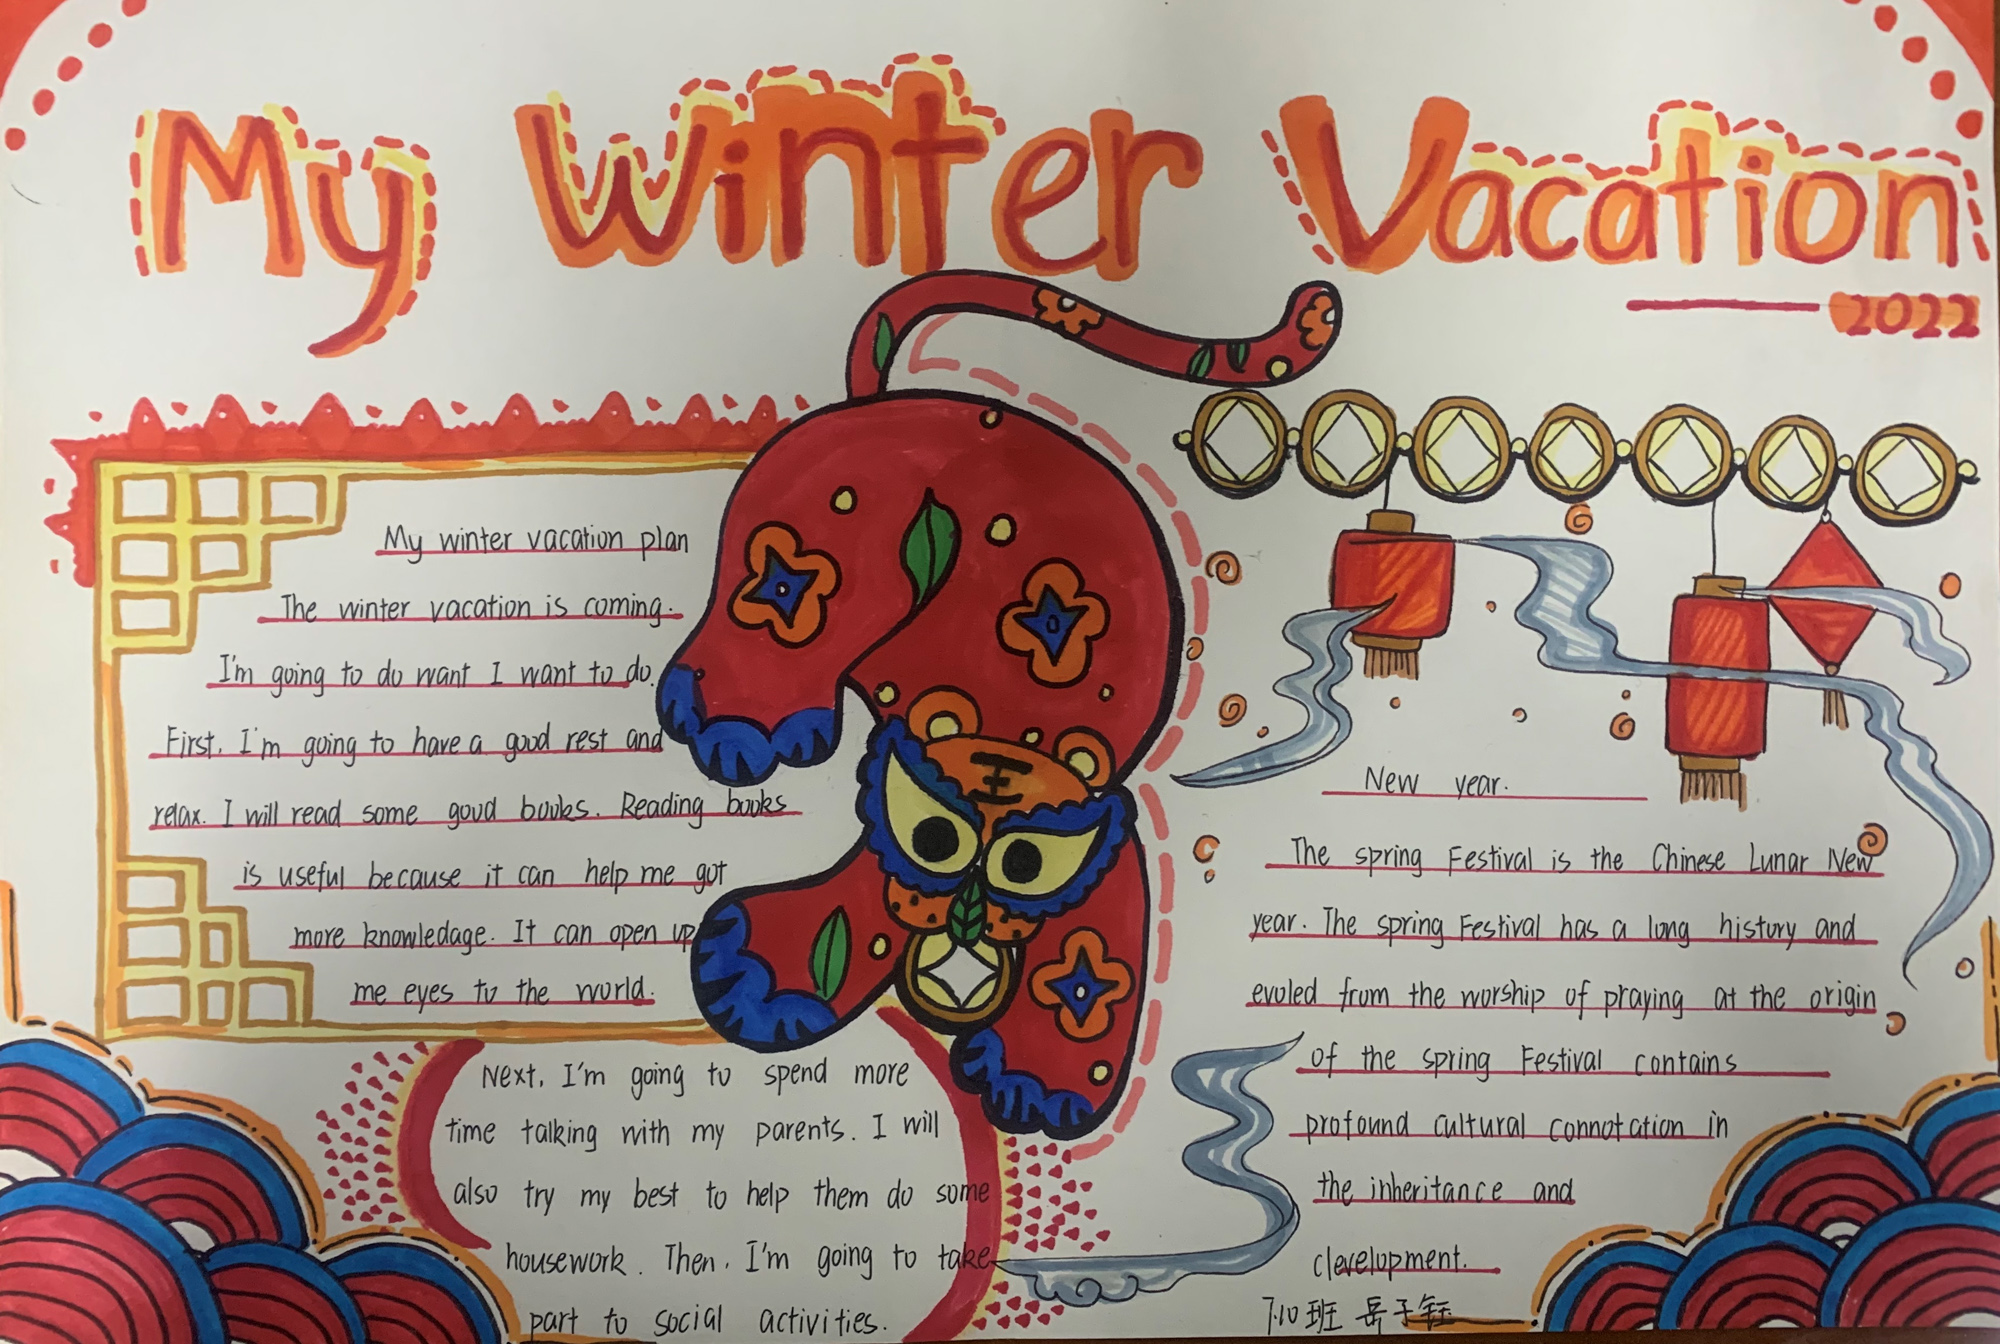 My Winter Vacation
2022
My winter vacation plan
The winter vacation is coming.
I'm going to do want I want to do.
First, I'm going to have a good rest and
relax. I will read some good books. Reading books
is useful because it can help me got
more knowledage. It can open up
me eyes to the world.
Next, I'm going to spend more
time talking with my parents. I will
also try my best to help them do some
housework. Then, I'm going to take
part to social activities.
New year.
The spring Festival is the Chinese Lunar New
year. The spring Festival has a long history and
evoled from the worship of praying at the origin
of the spring Festival contains
profound cultural connotation in
the inheritance and
clevelopment.
7.10班 岳子钰
王